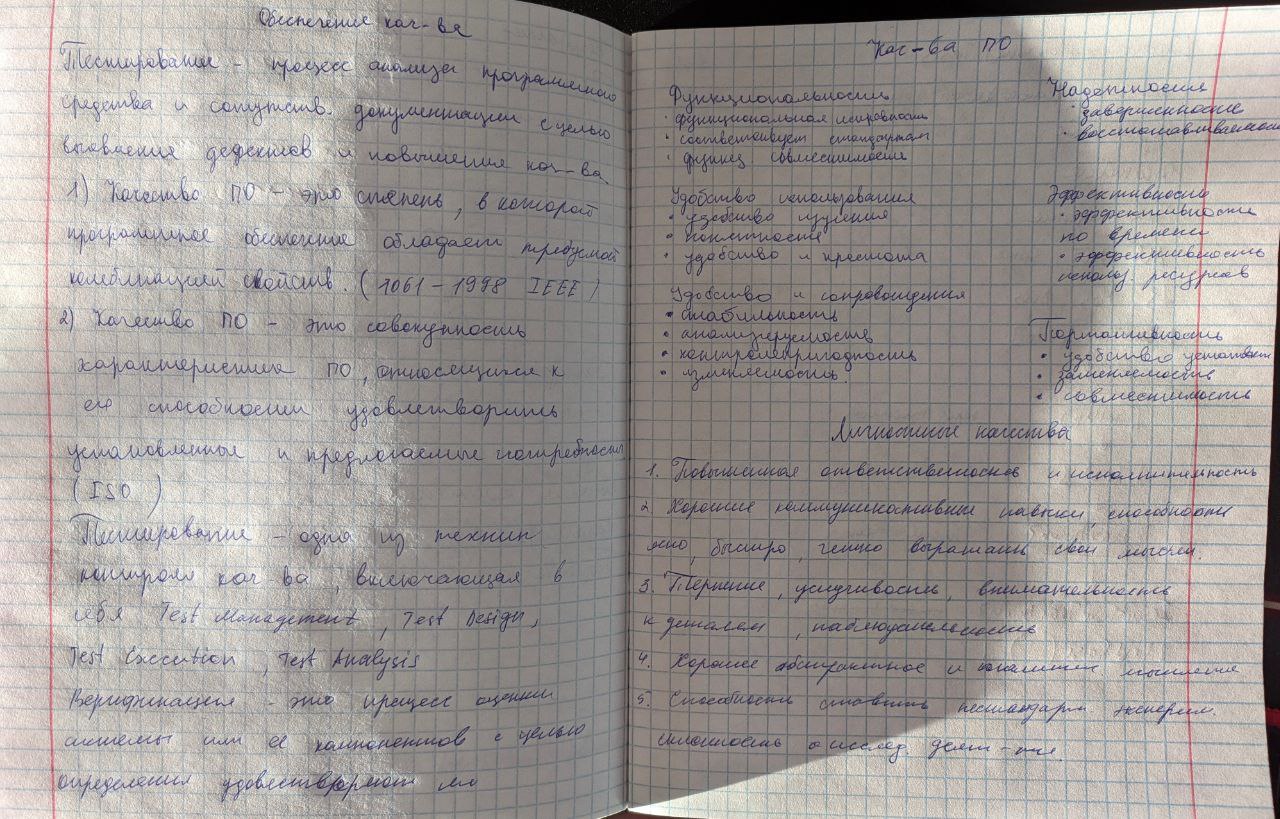 Обеспечение кач-ва
Тестирование - процесс анализа программного
средства и сопутств. документации с целью
выявления дефектов и повышения кач-ва
1) Качество ПО - это степень, в которой
программное обеспечение обладает требуемой
комбинацией свойств. (1061-1998 IEEE)
2) Качество ПО - это совокупность
характеристик ПО, относящихся к
его способности удовлетворить
установленные и предлогаемые потребности
(ISO)
Тестирование - одна из техник
контроля кач-ва, включающая в
себя Test Management, Test Design,
Test Execution, Test Analysis
Верификация - это процесс оценки
системы или её компонентов с целью
определения удовлетворяют ли
Кач-ва ПО
Функциональность
• функциональная исправность
• соответствует стандартам
• функц совместимость
Надежность
• завершенность
• восстанавливаемость
Удобство использования
• удобство изучения
• понятность
• удобство и простота
Эффективность
• эффективность
по времени
• эффективность
использ ресурсов
Удобство и сопровождения
• стабильность
• анализируемость
• контролепригодность
• изменяемость.
Портативность
• удобство
• заменяемость
• совместимость
Личностные качества
1. Повышенная ответственность и исполнительность
2. Хорошие коммуникативные навыки, способность
ясно, быстро, четко выражать свои мысли
3. Терпение, усидчивость, внимательность
к деталям, наблюдательность
4. Хорошее абстрактное и мышление
5. Способность ставить нестандартн. эксперим.
склонность к исслед. деят-ти.